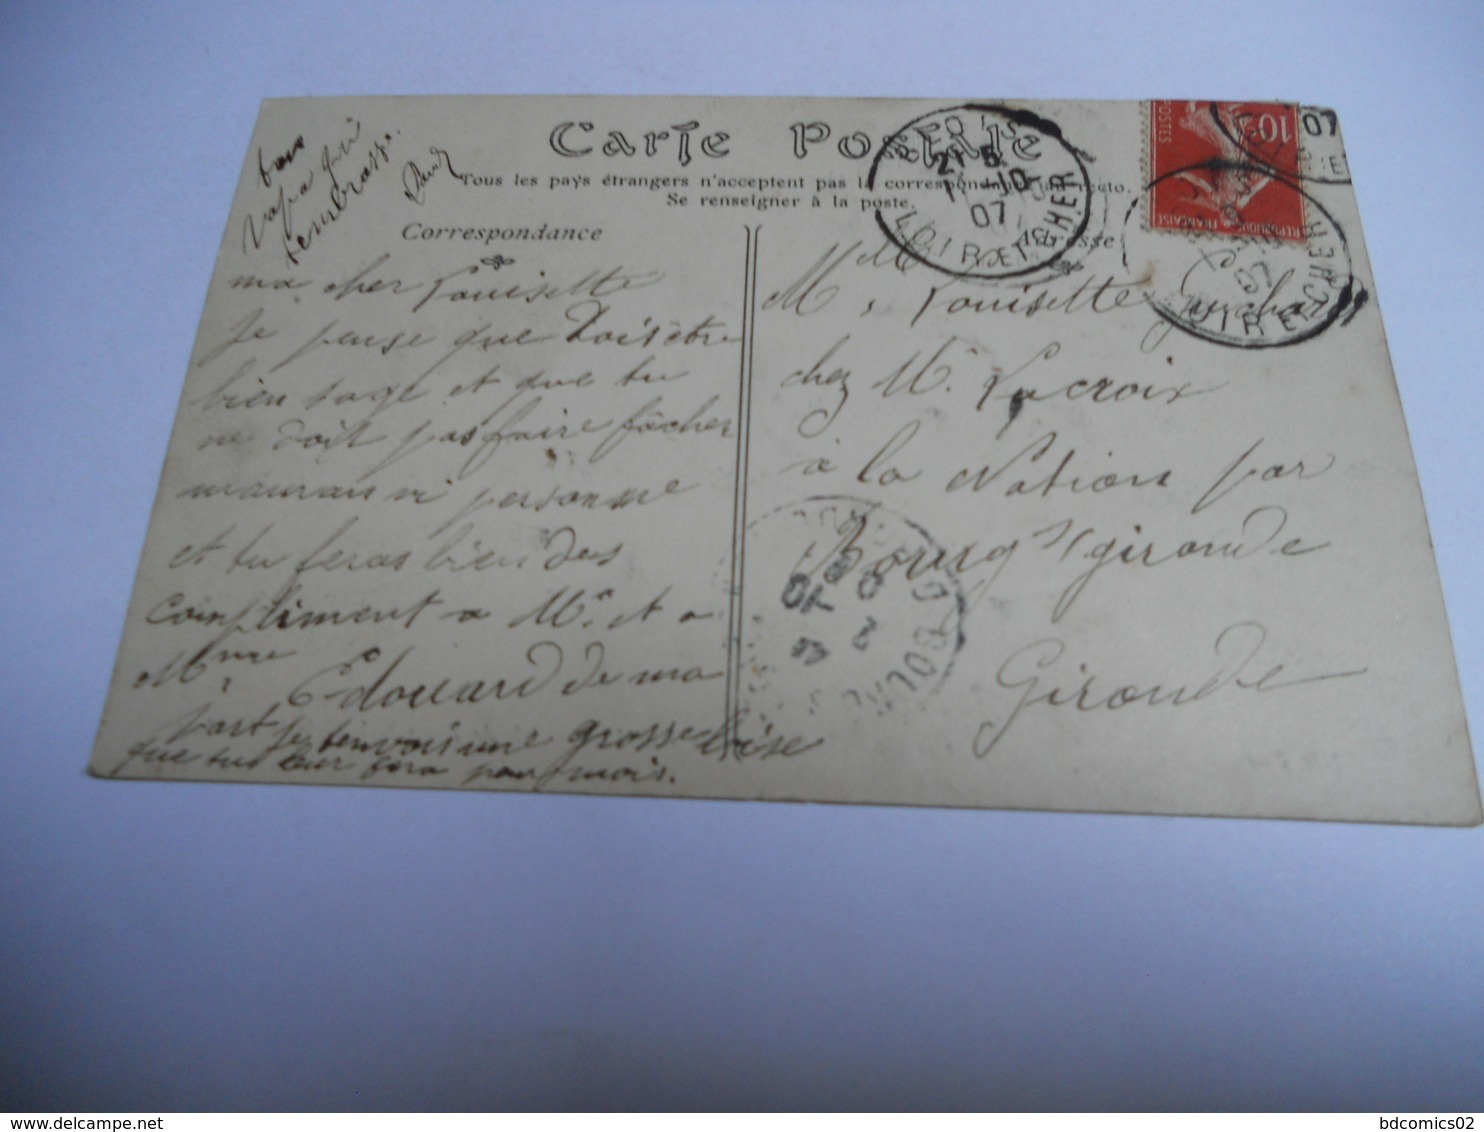 Carte Postale
Tous les pays étrangers n'acceptent pas la correspondance au recto.
Se renseigner à la poste.
Correspondance
Adresse
ma cher Louisette
Je pense que tois être
bien sage et que tu
ne doit pas faire fâcher
maman ni personne
et tu feras bien des
compliment a Mr et a
Mme Edouard de ma
part je tenvois une grosse bise
que tu leur fera pour mois.
bon
papa qui
tembrasse
Mlle Louisette
chez M. Lacroix
à la Nation par
Bourg s/ gironde
Gironde
21 5
10
07
LOIR ET CHER
10
POSTES
REPUBLIQUE FRANÇAISE
07
07
LOIR ET CHER
BOURG
bdcomics02